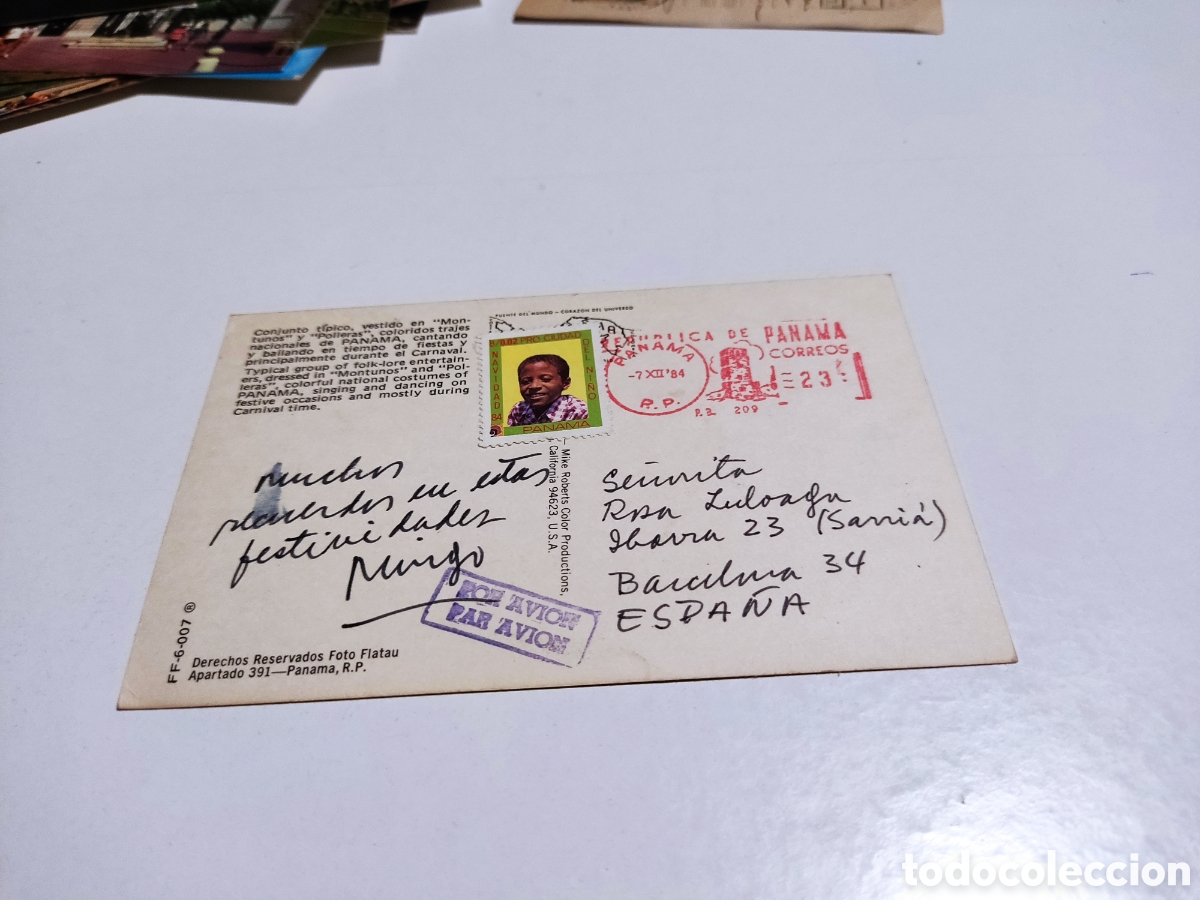 PUENTE DEL MUNDO - CORAZON DEL UNIVERSO
Conjunto típico, vestido en "Mon-
tunos" y "Polleras", coloridos trajes
nacionales de PANAMA, cantando
y bailando en tiempo de fiestas y
principalmente durante el Carnaval.
Typical group of folk-lore entertain-
ers, dressed in "Montunos" and "Pol-
leras", colorful national costumes of
PANAMA, singing and dancing on
festive occasions and mostly during
Carnival time.
B/0.02 PRO CIUDAD
DEL NIÑO
NAVIDAD 84
PANAMA
REPUBLICA DE PANAMA
CORREOS
PANAMA
-7 XII '84
R.P.
23
P.B. 209
Muchos
recuerdos en estas
festividades
Mingo
Mike Roberts Color Productions,
California 94623, U.S.A.
Señorita
Rosa Luloaga
Ibarra 23 (Sarriá)
Barcelona 34
ESPAÑA
POR AVION
PAR AVION
FF-6-007 ®
Derechos Reservados Foto Flatau
Apartado 391—Panama, R.P.
todocoleccion